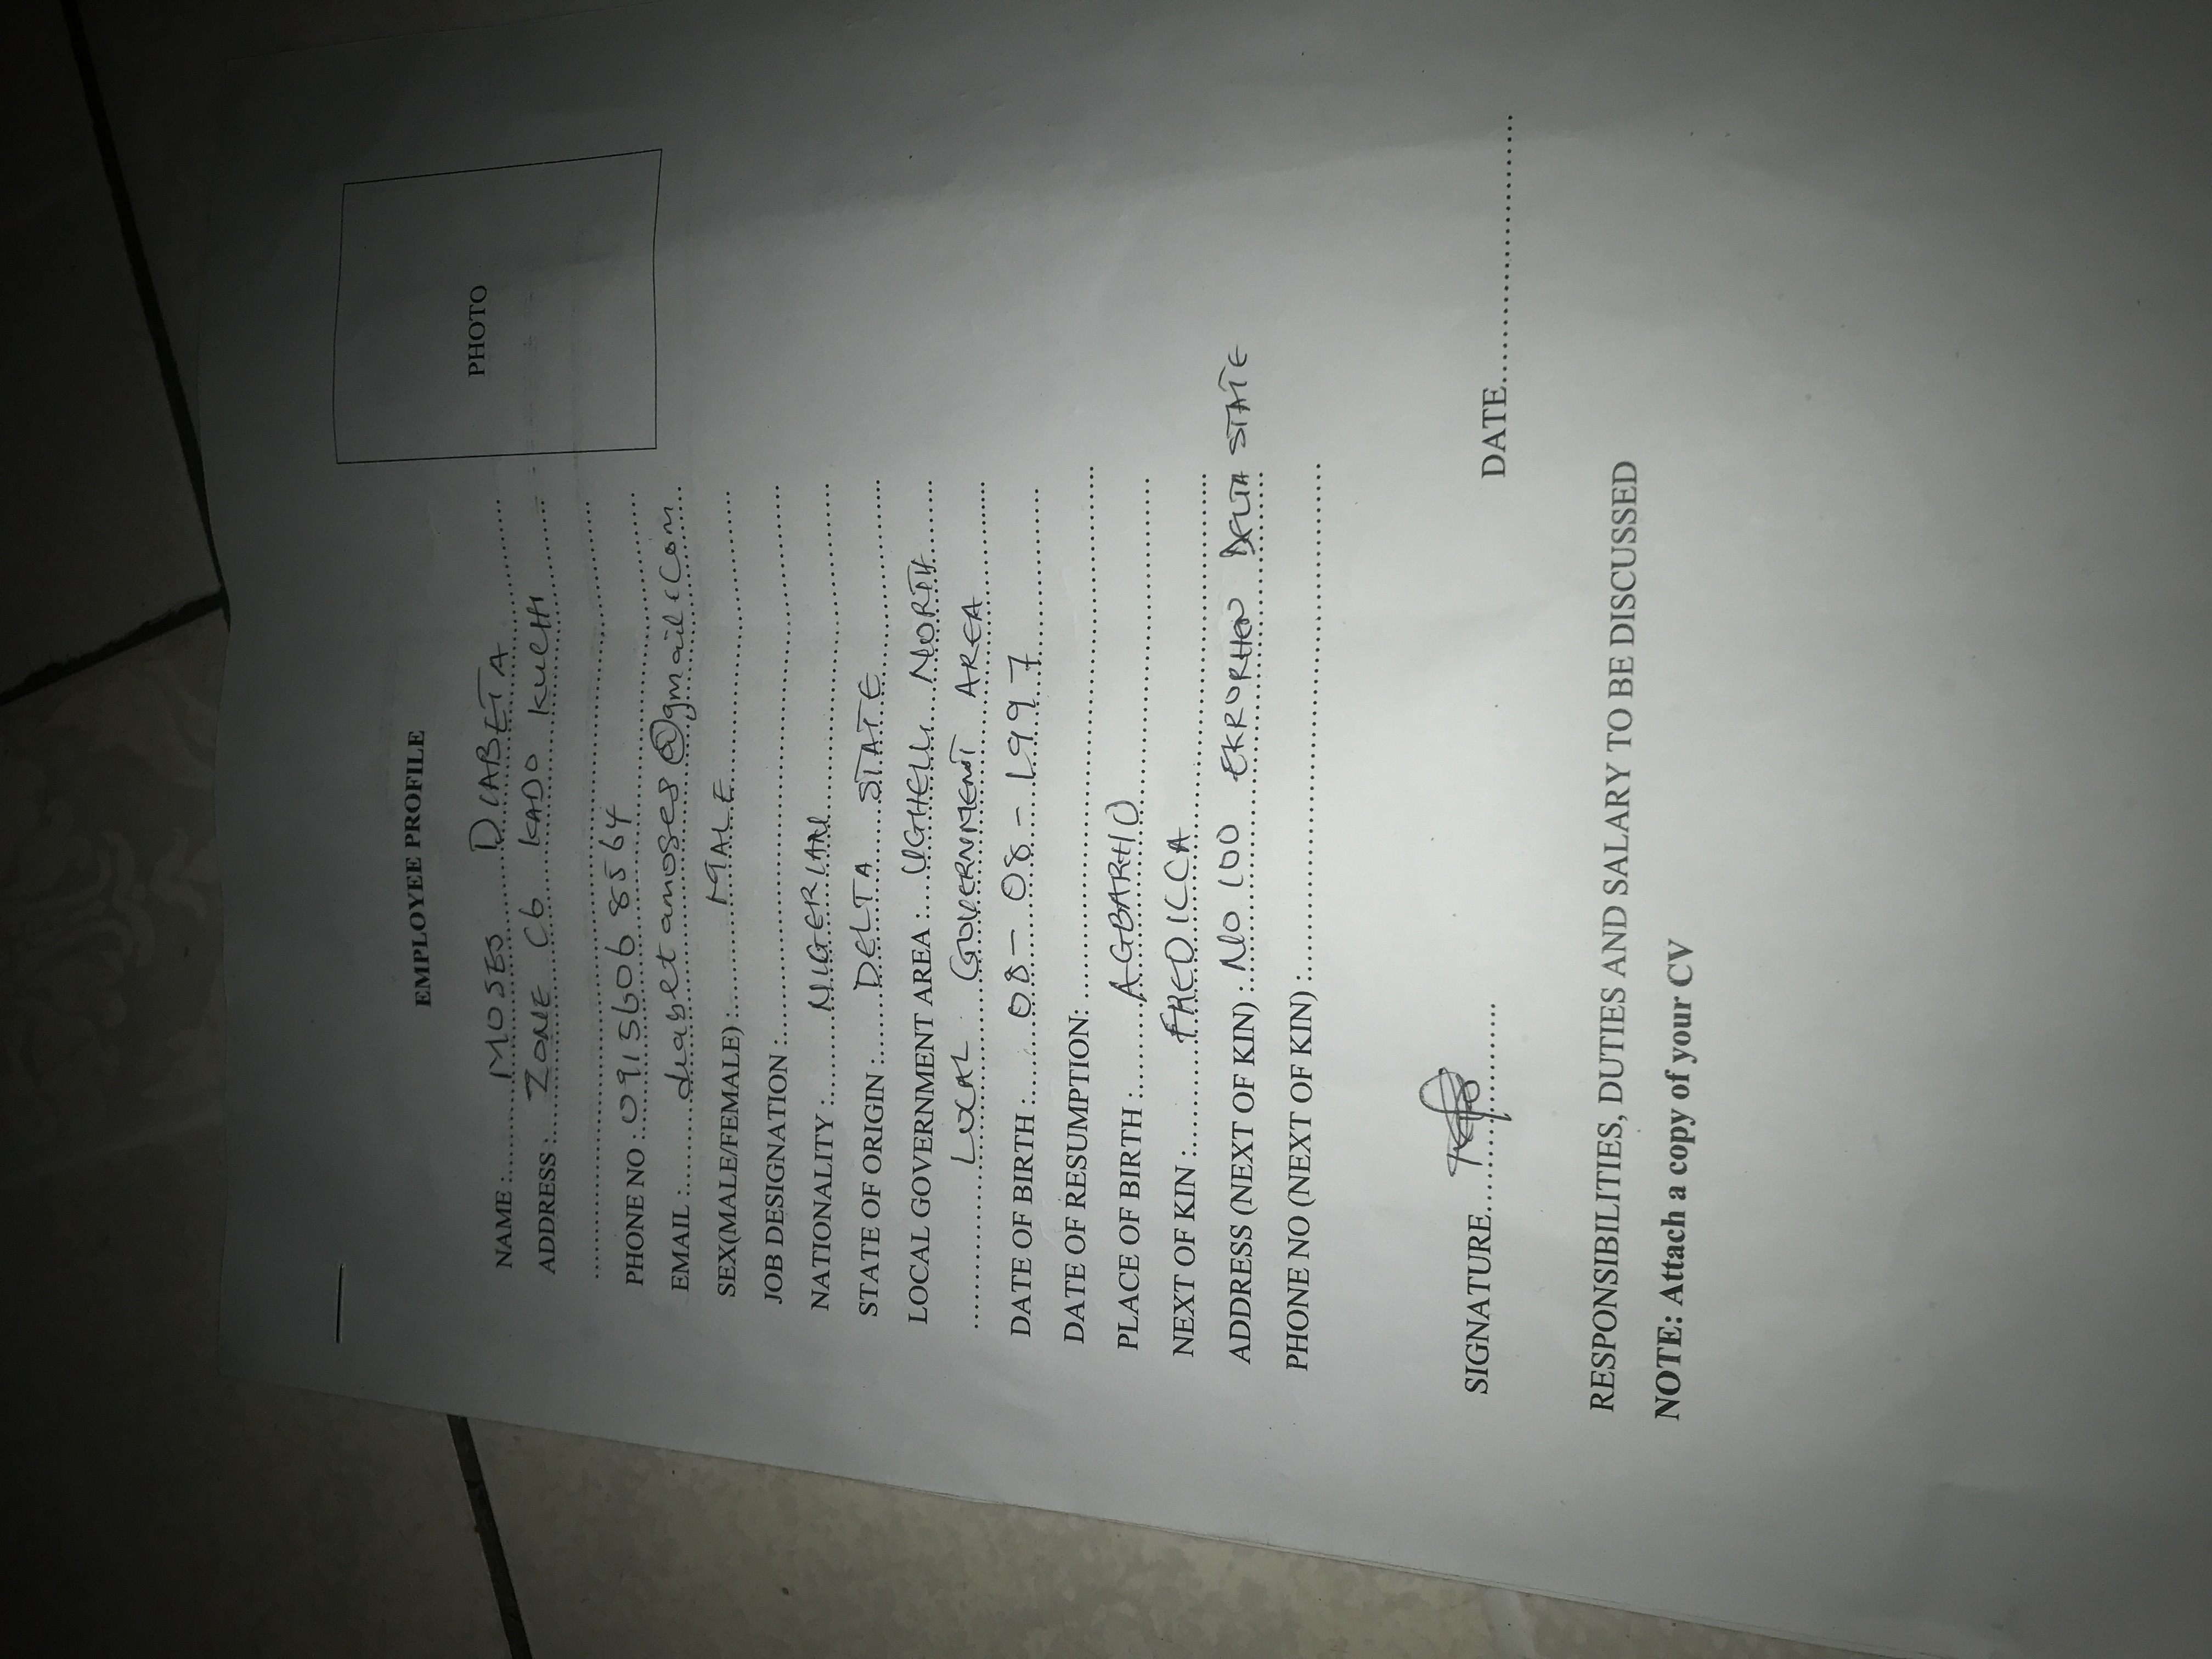 EMPLOYEE PROFILE
PHOTO
NAME :.......MOSES DIABETA.......
ADDRESS :....ZONE C6 KADO KUCHI.......
..............................
PHONE NO :..09156068564.......
EMAIL :.......diabetamoses@gmail.com..
SEX(MALE/FEMALE) :.......MALE.......
JOB DESIGNATION :..............................
NATIONALITY :.......NIGERIAN.......
STATE OF ORIGIN :.......DELTA STATE.......
LOCAL GOVERNMENT AREA :....UGHELLI NORTH.......
.......LOCAL GOVERNMENT AREA.......
DATE OF BIRTH :.......08-08-1997.......
DATE OF RESUMPTION: ..............................
PLACE OF BIRTH :.......AGBARHO.......
NEXT OF KIN :.......FREDICCA.......
ADDRESS (NEXT OF KIN) :..NO 100 DELTA STATE
PHONE NO (NEXT OF KIN) :..............................
SIGNATURE.................... DATE........................
RESPONSIBILITIES, DUTIES AND SALARY TO BE DISCUSSED
NOTE: Attach a copy of your CV